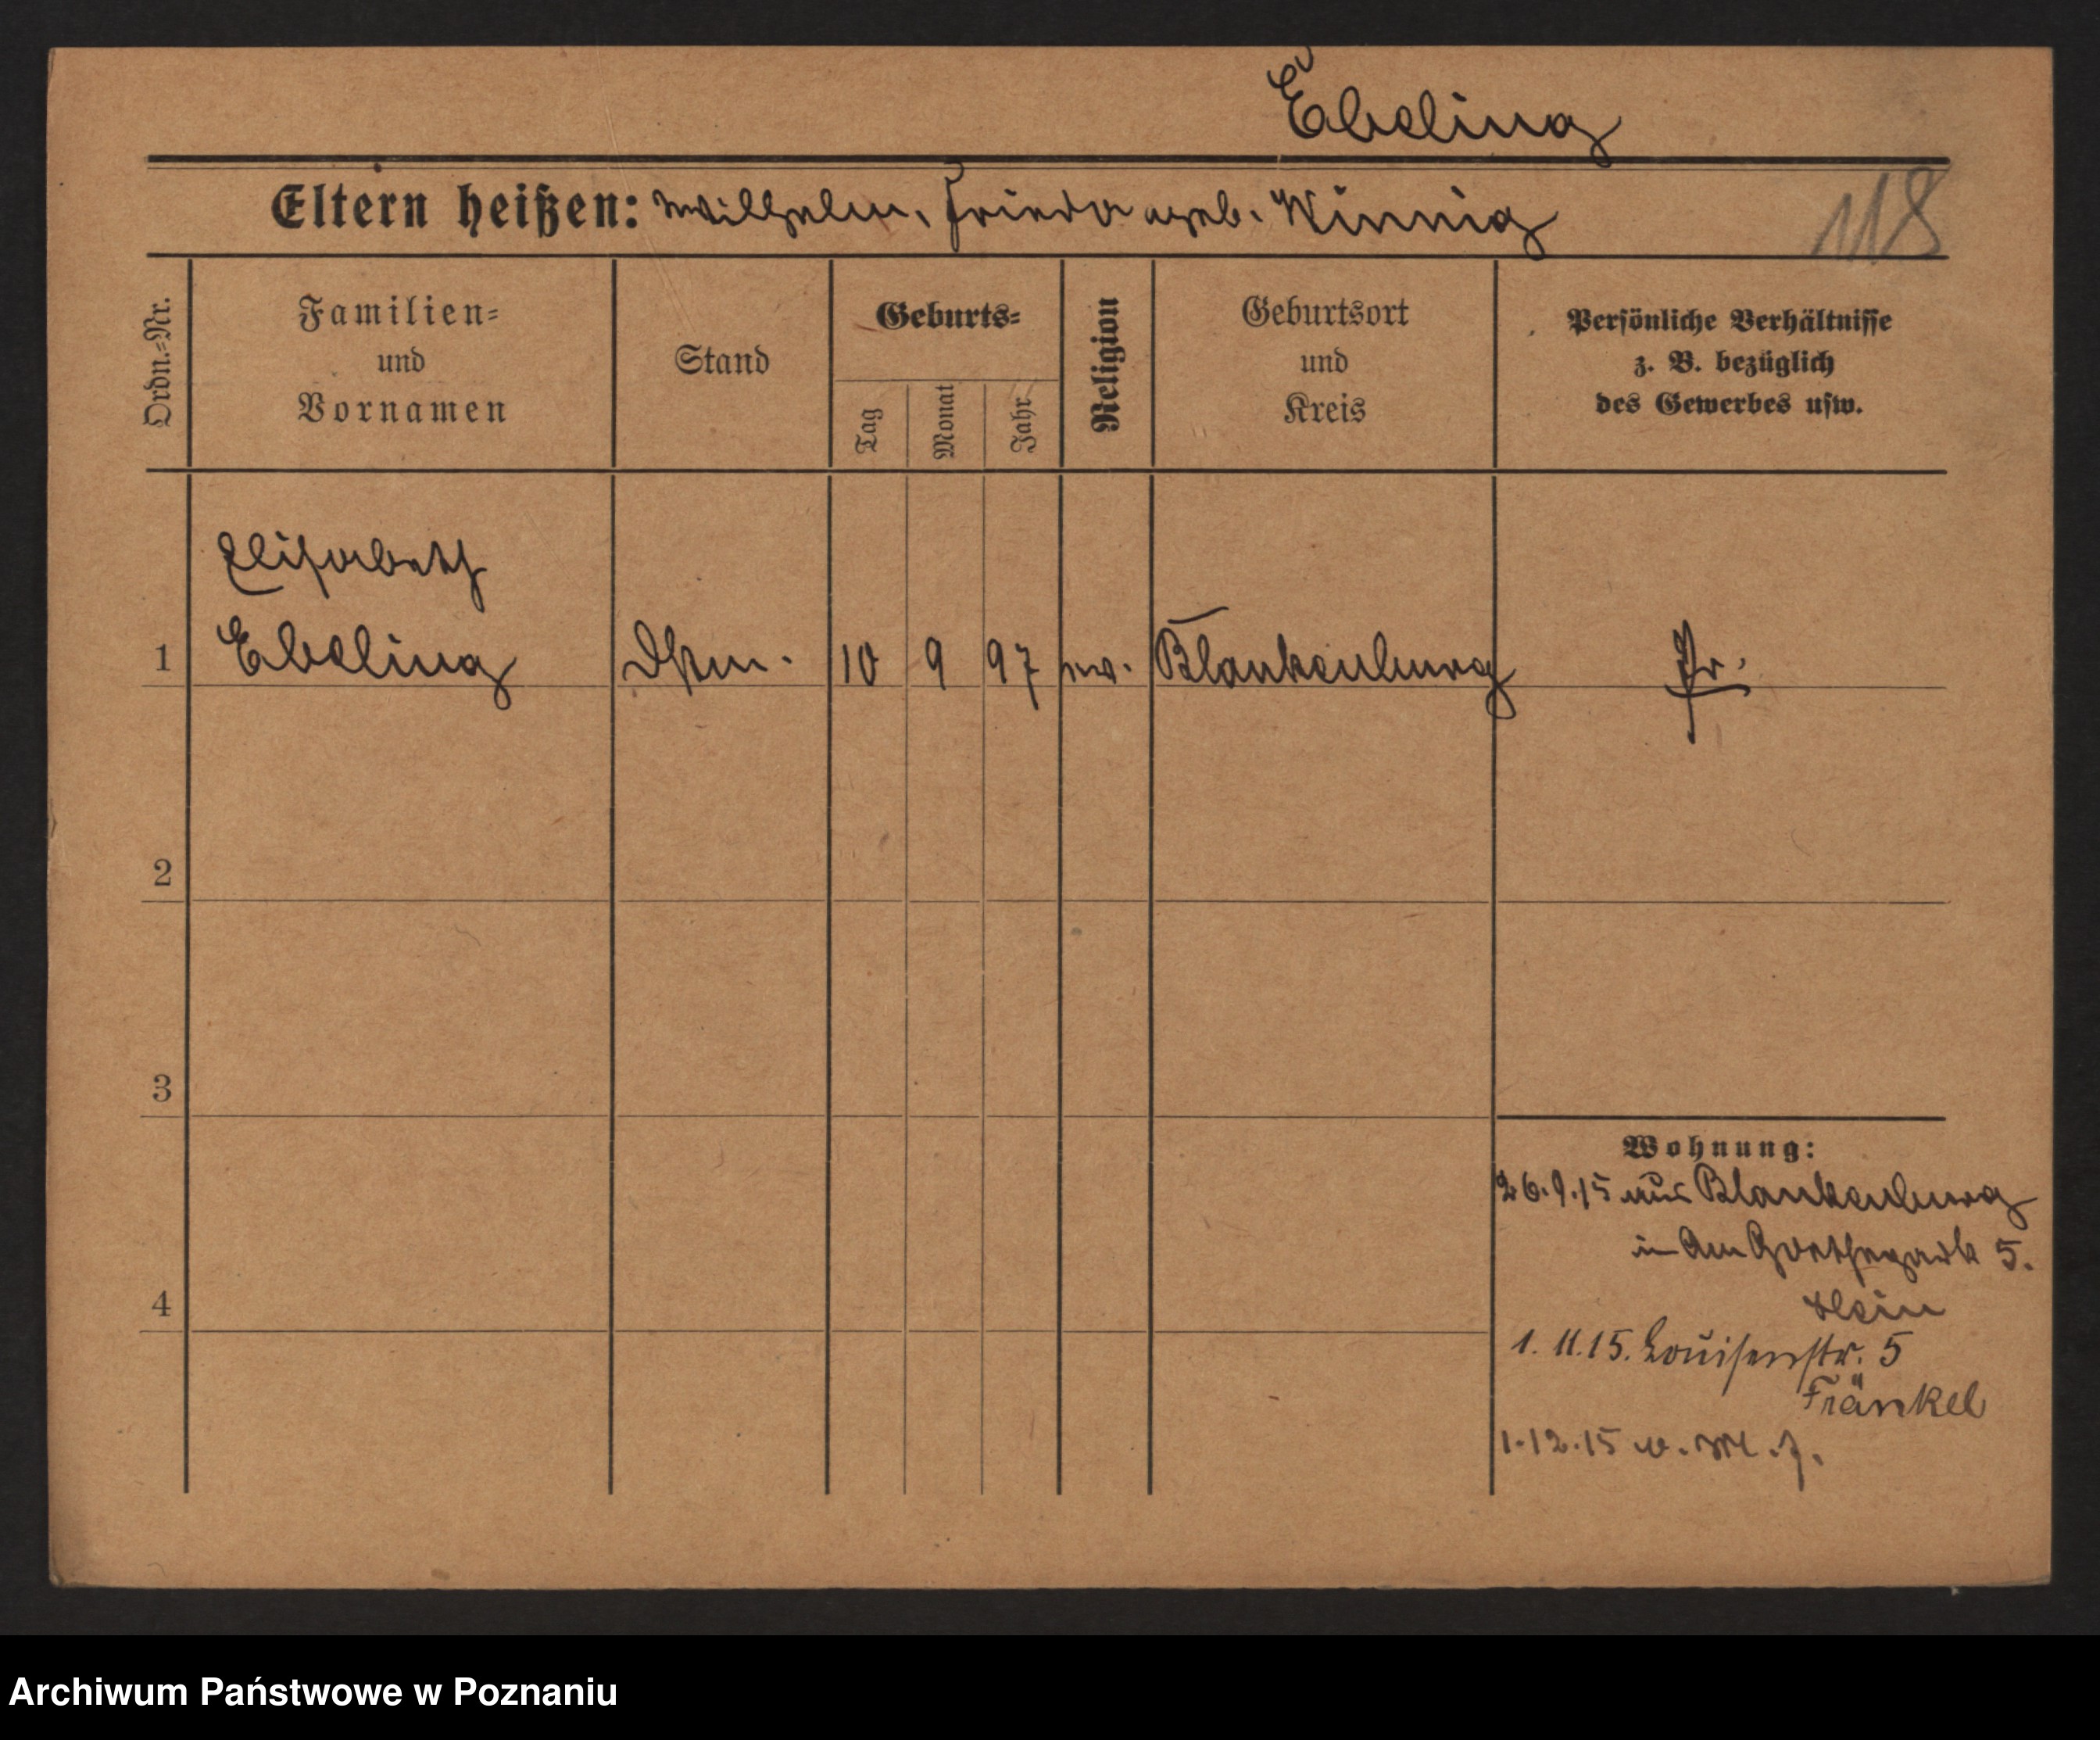 Ebeling
Eltern heißen: Wilhelm, Frieda geb. Winnig
118
Ordn.=Nr.
Familien=
und
Vornamen
Stand
Geburts=
Tag
Monat
Jahr
Religion
Geburtsort
und
Kreis
Persönliche Verhältnisse
z. B. bezüglich
des Gewerbes usw.
Elisabeth
1 Ebeling 10 9 97 ev. Blankenburg Pr.
2
3
4
Wohnung:
26.9.15 aus Blankenburg
in Am Goethepark 5.
Klein
1. 11. 15. Louisenstr. 5
Fränkel
1.12.15 v. M. J.
Archiwum Państwowe w Poznaniu